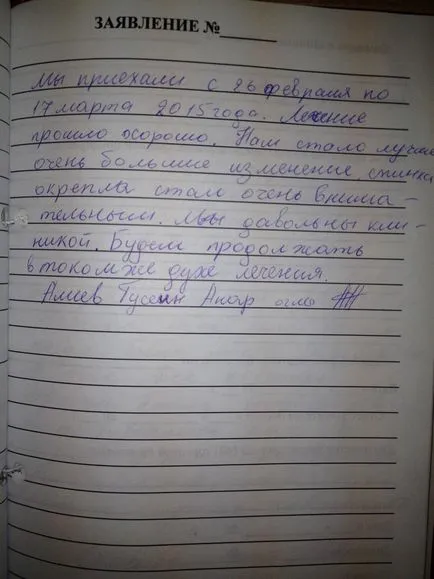 ЗАЯВЛЕНИЕ №
Мы приехали с 26 февраля по
17 марта 2015 года. Лечение
прошло хорошо. Нам стало лучше
очень большие изменение спинка
окрепла стал очень внима-
тельным. Мы давольны кли-
никой. Будем продолжать
в токомже духе лечения.
Алиев Гусеин Анар оглы